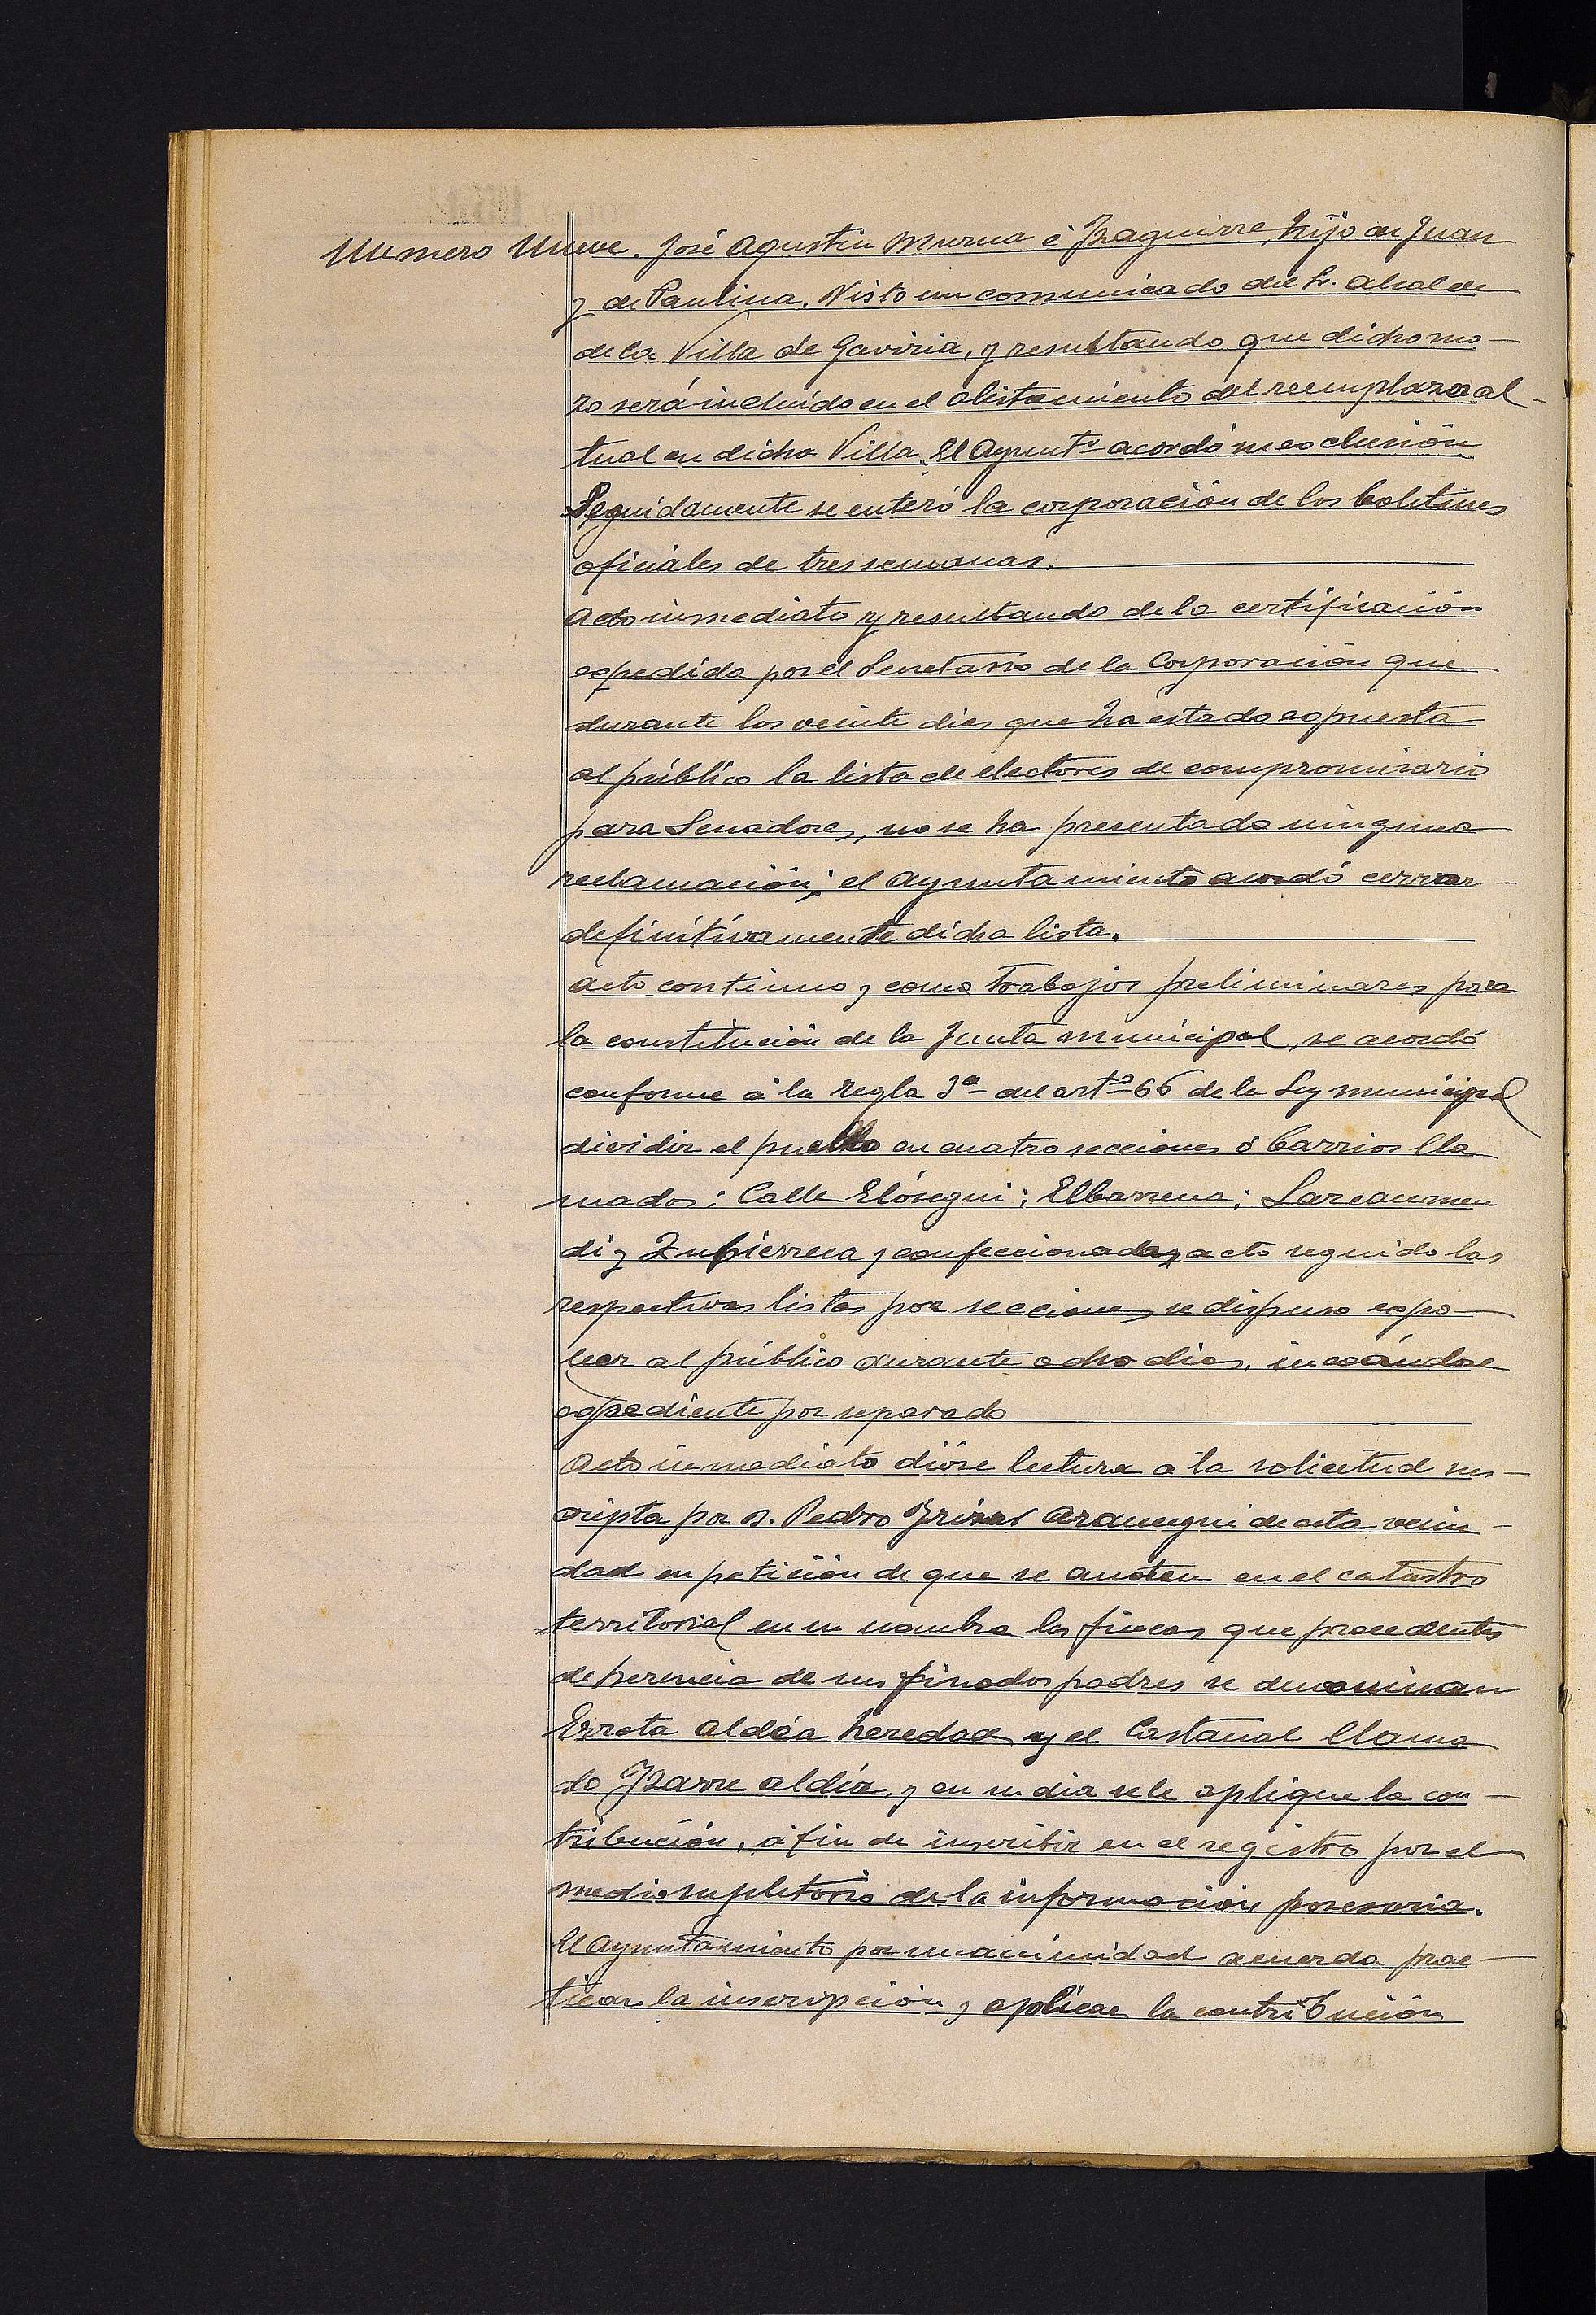 Numero Nueve. José Agustin Murua é Izaguirre, hijo de Juan
y de Paulina. Visto un comunicado del Sr. Alcalde
de la Villa de Gaviria, y resultando que dicho mo-
zo será incluido en el alistamiento del reemplazo ac-
tual en dicha Villa. El Ayuntº acordó su exclusión
Seguidamente se enteró la corporación de los boletines
oficiales de tres semanas.
Acto inmediato y resultando de la certificación
expedida por el Secretario de la Corporación que
durante los veinte dias que ha estado expuesta
al público la lista de electores de compromisario
para Senadores, no se ha presentado ninguna
reclamación; el Ayuntamiento acordó cerrar
definitivamente dicha lista.
Acto continuo y como trabajos preliminares para
la constitución de la Junta municipal, se acordó
conforme á la regla 3ª del artº 66 de la Ley municipal
dividir el pueblo en cuatro secciones ó barrios lla
mados: Calle Elósegui; Elbarrena; Larcaumen
di y Zubierreca y confeccionadas acto seguido las
respectivas listas por secciones, se dispuso expo-
ner al público durante ocho dias, incoándose
expediente por separado
Acto inmediato dióse lectura á la solicitud sus-
cripta por D. Pedro Irizar Aranegui de esta vecin-
dad en petición de que se anoten en el catastro
territorial en su nombre las fincas que procedentes
de herencia de sus finados padres se denominan
Errota aldéa heredad y el Castañal llama
do Izarre aldéa, y en su dia se le aplique la con-
tribución, á fin de inscribir en el registro por el
medio supletorio de la información posesoria.
El Ayuntamiento por unanimidad acuerda prac-
ticar la inscripción y aplicar la contribución